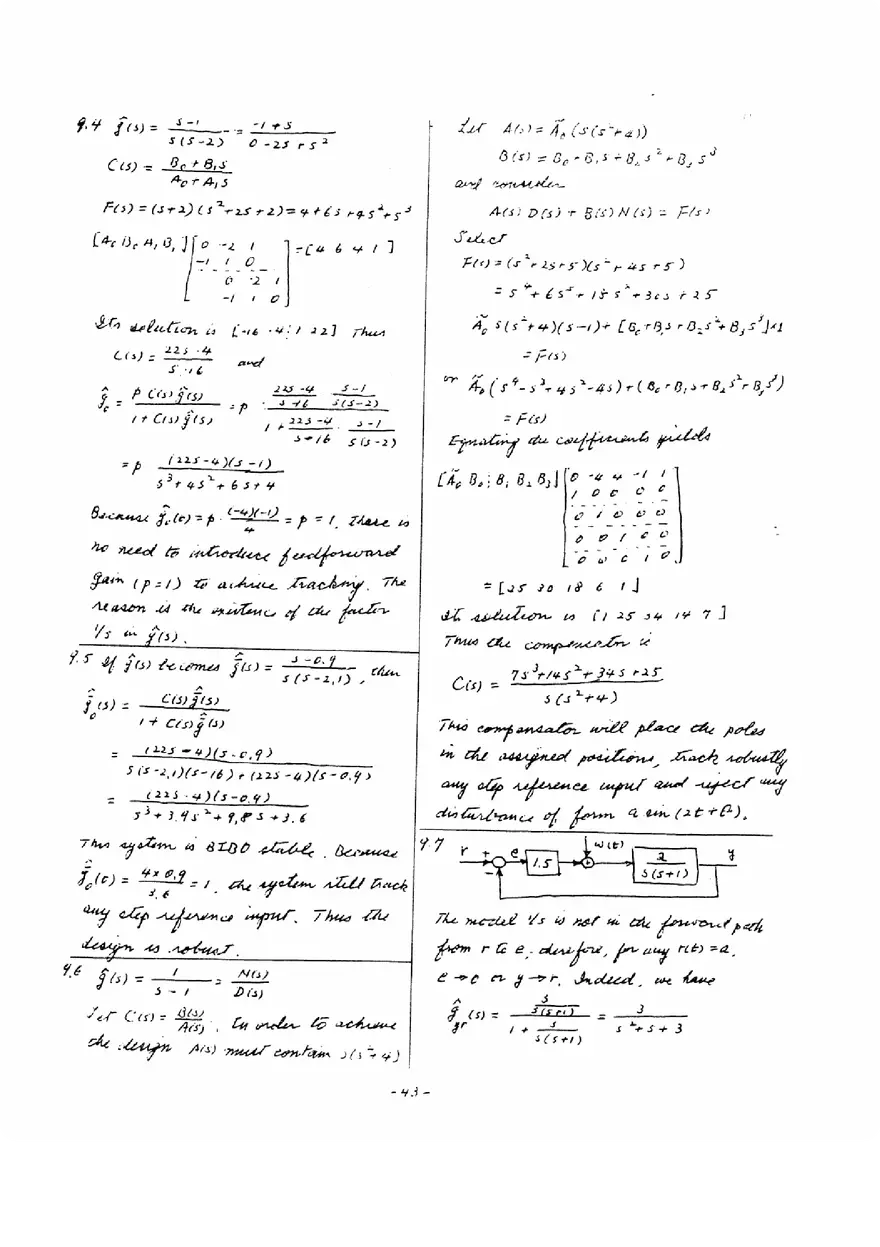 9.4 ĝ(s) = (s-1)/(s(s-2)) = (-1+s)/(0-2s+s²)
C(s) = (B₀+B₁s)/(A₀+A₁s)
F(s) = (s+2)(s²+2s+2) = 4+6s+4s²+s³
[A₀ B₀ A₁ B₁] [0 -2 1
-1 1 0
0 -2 1
-1 1 0] = [4 6 4 1]
Its solution is [-16 -4 ; 1 22] Thus
C(s) = (22s-4)/(s-16) and
ĝ₀ = p C(s)ĝ(s)/(1+C(s)ĝ(s)) = p · ((22s-4)/(s-16) (s-1)/(s(s-2)))/(1+(22s-4)/(s-16) · (s-1)/(s(s-2)))
= p (22s-4)(s-1)/(s³+4s²+6s+4)
Because ĝ₀(0) = p · (-4)(-1)/4 = p = 1. There is
no need to introduce feedforward
gain (p=1) to achieve tracking. The
reason is the existence of the factor
1/s in ĝ(s).
9.5 If ĝ(s) becomes ĝ(s) = (s-0.9)/(s(s-2.1)), then
ĝ₀(s) = C(s)ĝ(s)/(1+C(s)ĝ(s))
= (22s-4)(s-0.9)/(s(s-2.1)(s-16)+(22s-4)(s-0.9))
= (22s-4)(s-0.9)/(s³+3.9s²+9.8s+3.6)
This system is BIBO stable. Because
ĝ₀(0) = 4×0.9/3.6 = 1. the system still track
any step reference input. Thus the
design is robust.
9.6 ĝ(s) = 1/(s-1) = N(s)/D(s)
Let C(s) = B(s)/A(s). In order to achieve
the design A(s) must contain s(s²+4)
Let A(s) = Ã₀(s(s²+4))
B(s) = B₀+B₁s+B₂s²+B₃s³
and consider
A(s)D(s)+B(s)N(s) = F(s)
Select
F(s) = (s²+2s+5)(s²+4s+5)
= s⁴+6s³+18s²+30s+25
Ã₀ s(s²+4)(s-1)+[B₀+B₁s+B₂s²+B₃s³]×1
= F(s)
or Ã₀(s⁴-s³+4s²-4s)+(B₀+B₁s+B₂s²+B₃s³)
= F(s)
Equating the coefficients yields
[Ã₀ B₀ ; B₁ B₂ B₃] [0 -4 4 -1 1
1 0 0 0 0
0 1 0 0 0
0 0 1 0 0
0 0 0 1 0]
= [25 30 18 6 1]
Its solution is [1 25 34 14 7]
Thus the compensator is
C(s) = (7s³+14s²+34s+25)/(s(s²+4))
This compensator will place the poles
in the assigned positions, track robustly
any step reference input and reject any
disturbance of form a sin(2t+θ).
9.7 r + e 1.5 w(t) + 2/(s(s+1)) y
-
The model 1/s is not in the forward path
from r to e; therefore, for any r(t)=a,
e→0 or y→r. Indeed, we have
ĝ_yr(s) = (3/(s(s+1)))/(1+3/(s(s+1))) = 3/(s²+s+3)
- 43 -